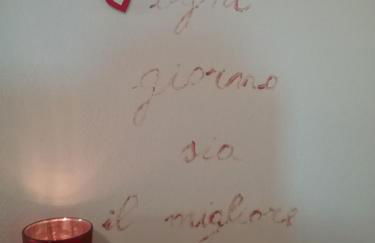 ogni
giorno
sia
il migliore